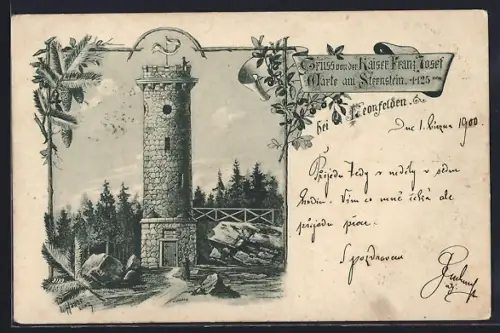 Gruss von der Kaiser Franz Josef
Warte am Sternstein. 1125 m
bei Leonfelden.
Dne 1. března 1900
Přijedu tedy v neděly v sedm
hodin. Vím co mně čeká ale
přijedu
S pozdravem